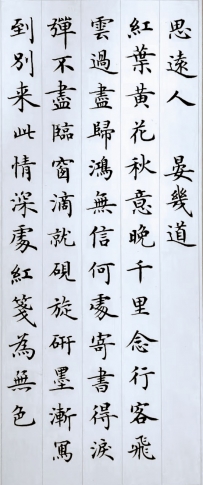 思遠人 晏幾道
紅葉黃花秋意晚千里念行客飛
雲過盡歸鴻無信何處寄書得淚
彈不盡臨窗滴就硯旋研墨漸寫
到別来此情深處紅箋為無色